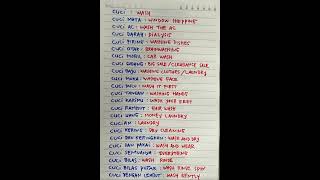 CUCI : WASH
CUCI MATA : WINDOW SHOPPING
CUCI AC : WASH THE AC
CUCI DARAH : DIALYSIS
CUCI PIRING : WASHING DISHES
CUCI OTAK : BRAINWASHING
CUCI MOBIL : CAR WASH
CUCI GUDANG : BIG SALE / CLEARANCE SALE
CUCI BAJU : WASHING CLOTHES / LAUNDRY
CUCI MUKA : WASHING FACE
CUCI DULU : WASH IT FIRST
CUCI TANGAN : WASHING HANDS
CUCI KAKIMU : WASH YOUR FEET
CUCI RAMBUT : HAIR WASH
CUCI UANG : MONEY LAUNDRY
CUCIAN : LAUNDRY
CUCI KERING : DRY CLEANING
CUCI DAN KERINGKAN : WASH AND DRY
CUCI DAN PAKAI : WASH AND WEAR
CUCI SEMUANYA : EVERYTHING
CUCI BILAS : WASH RINSE
CUCI BILAS PUTAR : WASH RINSE SPIN
CUCI DENGAN LEMBUT : WASH GENTLY